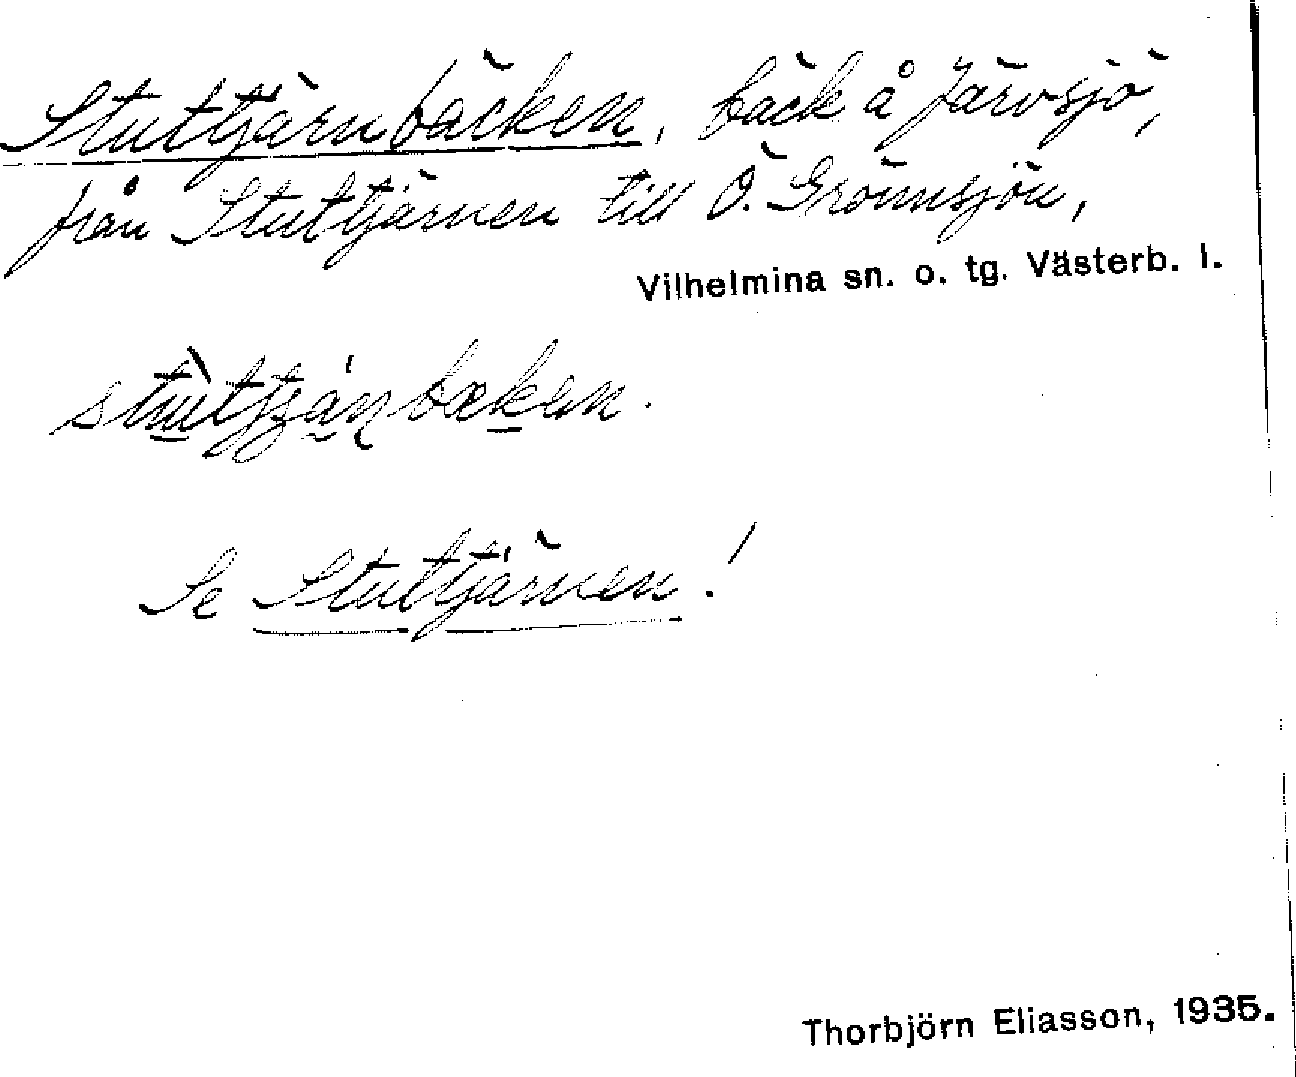 Stuttjärnbäcken, bäck å Järvsjö,
från Stuttjärnen till Ö. Grönnsjön,
Vilhelmina sn. o. tg. Västerb. l.
Se Stuttjärnen!
Thorbjörn Eliasson, 1935.